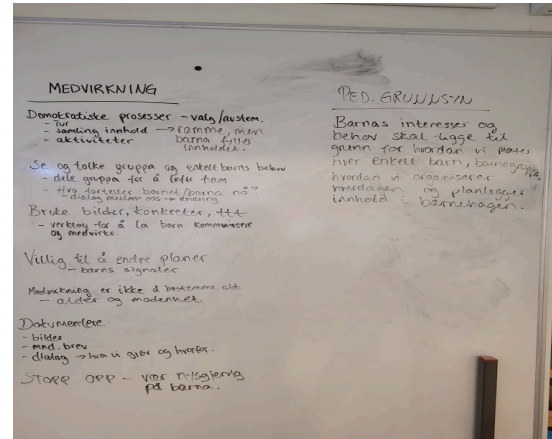 MEDVIRKNING
Demokratiske prosesser - valg/avstem.
- Tur
- samling innhold → ramme, men
- aktiviteter barna fyller
innholdet.
Se og tolke gruppa og enkelt barns behov
- dele gruppa for å løfte fram
- Hva forteller barnet/barna nå?
- dialog mellom oss → endring
Bruke bilder, konkreter, ttt
- verktøy for å la barn kommunisere
og medvirke.
Villig til å endre planer
- barns signaler
Medvirkning er ikke å bestemme alt
- alder og modenhet
Dokumentere
- bilder
- mnd. brev
- dialog → hva vi gjør og hvorfor.
STOPP OPP - vær nysgjerrig
på barna.
PED. GRUNNSYN
Barnas interesser og
behov skal ligge til
grunn for hvordan vi møter
hver enkelt barn, barnegruppa,
hvordan vi organiserer
hverdagen og planlegger
innhold i barnehagen.